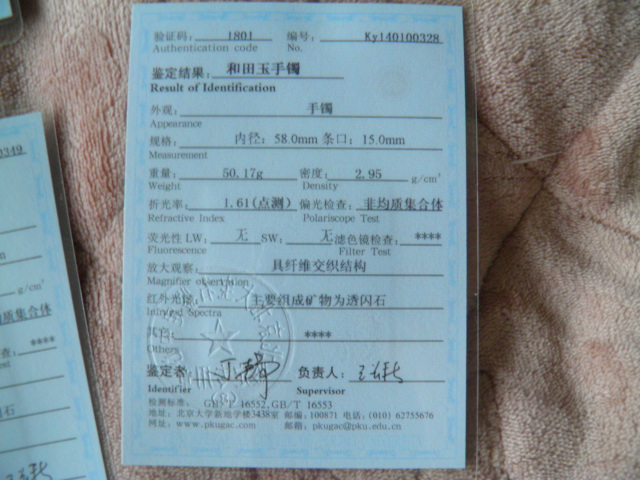 验证码： 1801 编号： Ky140100328
Authentication code No.
鉴定结果： 和田玉手镯
Result of Identification
外观： 手镯
Appearance
规格： 内径：58.0mm 条口：15.0mm
Measurement
重量： 50.17g 密度： 2.95 g/cm³
Weight Density
折光率： 1.61(点测) 偏光检查： 非均质集合体
Refractive Index Polariscope Test
荧光性 LW: 无 SW: 无 滤色镜检查： ****
Fluorescence Filter Test
放大观察： 具纤维交织结构
Magnifier observation
红外光谱： 主要组成矿物为透闪石
Infrared Spectra
其它： ****
Others
鉴定者： 负责人：
Identifier Supervisor
检测标准： GB/T 16552,GB/T 16553
地址：北京大学新地学楼3438室 邮编：100871 电话：(010) 62755676
网址：www.pkugac.com 邮箱：pkugac@pku.edu.cn
0349
g/cm³
均质集合体
****
石